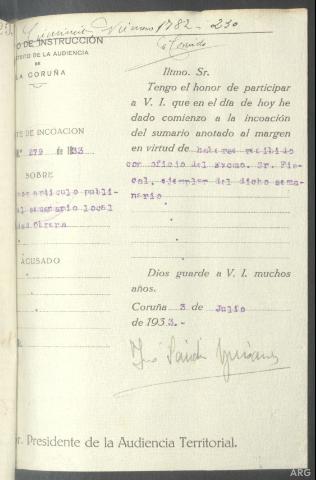 782 - 230
O DE INSTRUCCIÓN
DE LA AUDIENCIA
DE
LA CORUÑA
TE DE INCOACION
N.º 279 de 1933
SOBRE
articulo publi-
semanario local
Obrera
ACUSADO
Iltmo. Sr.
Tengo el honor de participar
a V. I. que en el día de hoy he
dado comienzo a la incoación
del sumario anotado al margen
en virtud de haberse recibido
con oficio del Excmo. Sr. Fis-
cal, ejemplar del dicho sema-
nario
Dios guarde a V. I. muchos
años.
Coruña 3 de Julio
de 1933.-
r. Presidente de la Audiencia Territorial.
ARG